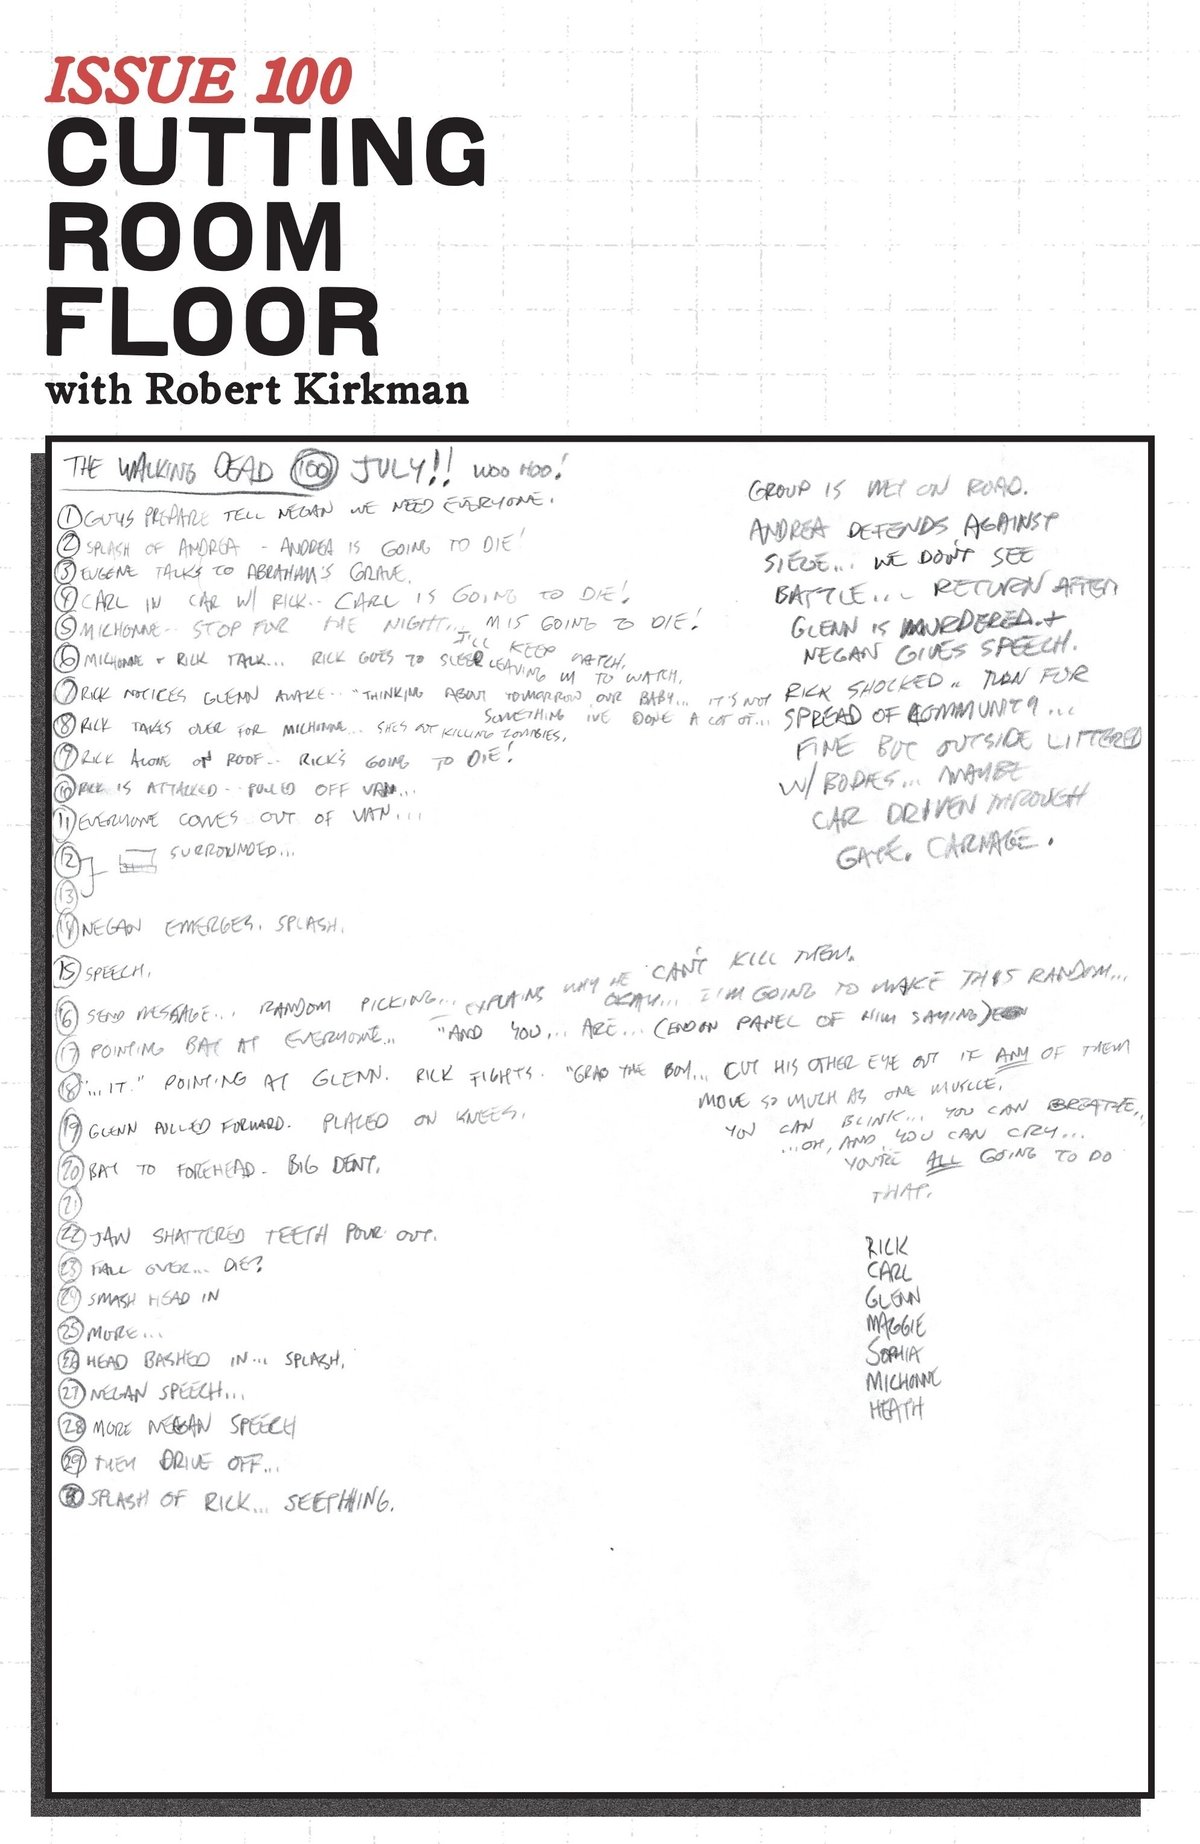 ISSUE 100
CUTTING
ROOM
FLOOR
with Robert Kirkman
THE WALKING DEAD 100 JULY!! WOO HOO!
1 GUYS PREPARE TELL NEGAN WE NEED EVERYONE.
2 SPLASH OF ANDREA - ANDREA IS GOING TO DIE!
3 EUGENE TALKS TO ABRAHAM'S GRAVE.
4 CARL IN CAR W/ RICK.. CARL IS GOING TO DIE!
5 MICHONNE.. STOP FOR THE NIGHT... M IS GOING TO DIE!
6 MICHONNE + RICK TALK... RICK GOES TO SLEEP LEAVING M TO WATCH.
I'LL KEEP WATCH.
7 RICK NOTICES GLENN AWAKE.. "THINKING ABOUT TOMORROW, OUR BABY... IT'S NOT
SOMETHING I'VE DONE A LOT OF...
8 RICK TAKES OVER FOR MICHONNE... SHE'S OUT KILLING ZOMBIES.
9 RICK ALONE ON ROOF.. RICK'S GOING TO DIE!
10 RICK IS ATTACKED.. PULLED OFF VAN...
11 EVERYONE COMES OUT OF VAN...
12 SURROUNDED...
13
14 NEGAN EMERGES. SPLASH.
15 SPEECH.
16 SEND MESSAGE... RANDOM PICKING... EXPLAINS WHY HE CAN'T KILL THEM.
OKAY... I'M GOING TO MAKE THIS RANDOM...
17 POINTING BAT AT EVERYONE... "AND YOU... ARE... (END ON PANEL OF HIM SAYING)
18 "...IT." POINTING AT GLENN. RICK FIGHTS. "GRAB THE BOY... CUT HIS OTHER EYE OUT IF ANY OF THEM
MOVE SO MUCH AS ONE MUSCLE.
YOU CAN BLINK... YOU CAN BREATHE...
...OH, AND YOU CAN CRY...
YOU'RE ALL GOING TO DO
THAT.
19 GLENN PULLED FORWARD. PLACED ON KNEES.
20 BAT TO FOREHEAD. BIG DENT.
21
22 JAW SHATTERED TEETH POUR OUT.
23 FALL OVER... DIE?
24 SMASH HEAD IN
25 MORE...
26 HEAD BASHED IN... SPLASH.
27 NEGAN SPEECH...
28 MORE NEGAN SPEECH
29 THEY DRIVE OFF...
30 SPLASH OF RICK... SEETHING.
GROUP IS MET ON ROAD.
ANDREA DEFENDS AGAINST
SIEGE... WE DON'T SEE
BATTLE... RETURN AFTER
GLENN IS MURDERED +
NEGAN GIVES SPEECH.
RICK SHOCKED.. TURN FOR
SPREAD OF COMMUNITY...
FINE BUT OUTSIDE LITTERED
W/ BODIES... MAYBE
CAR DRIVEN THROUGH
GATE. CARNAGE.
RICK
CARL
GLENN
MAGGIE
SOPHIA
MICHONNE
HEATH